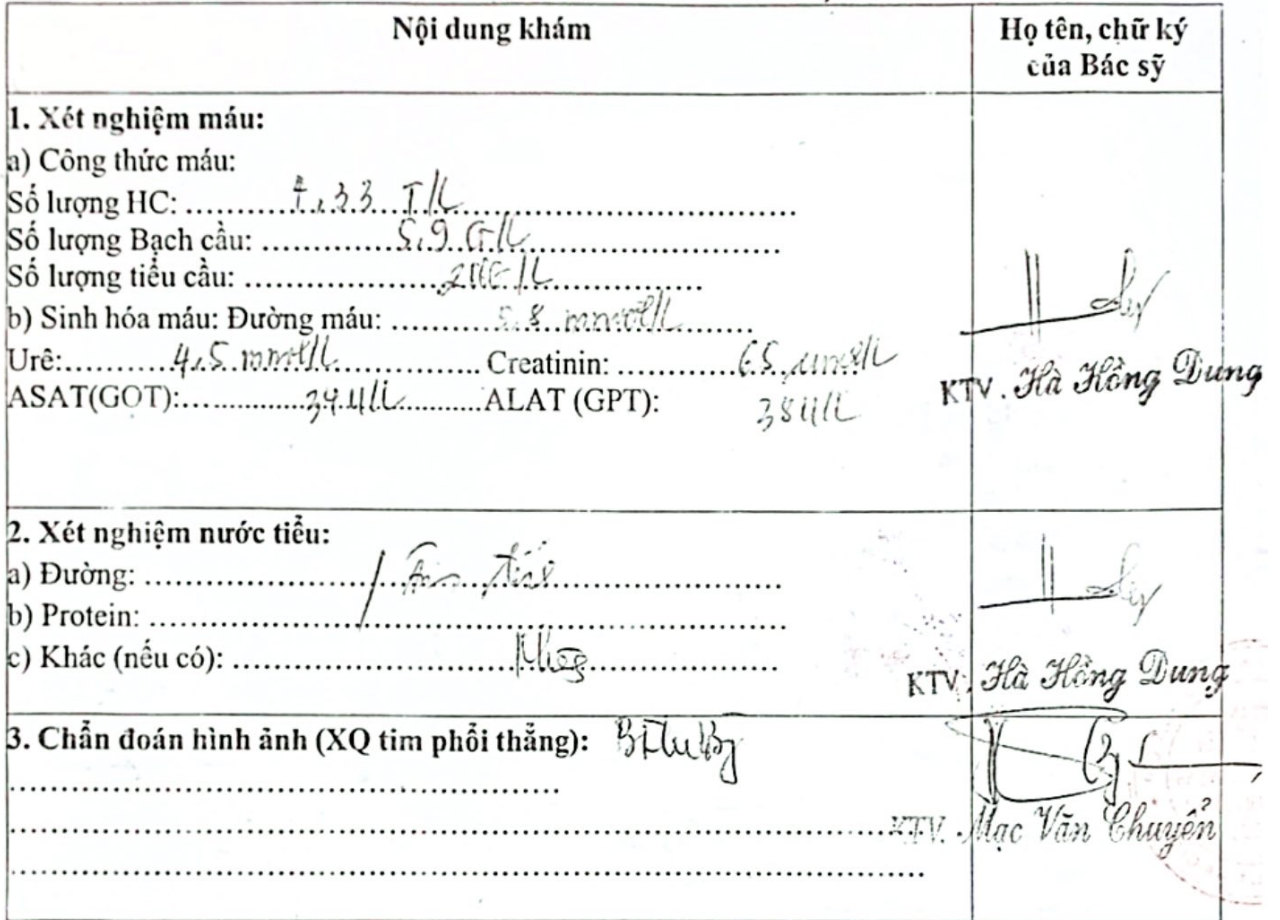 Nội dung khám
Họ tên, chữ ký
của Bác sỹ
1. Xét nghiệm máu:
a) Công thức máu:
Số lượng HC: ..........4,33 T/L..................................
Số lượng Bạch cầu: ..............5,9 G/L..........................
Số lượng tiểu cầu: .................... G/L....................
b) Sinh hóa máu: Đường máu: ...........5.8 mmol/L........
Urê:..........4,5 mmol/L............... Creatinin: ............65 µmol/L
ASAT(GOT):............34 U/L.........ALAT (GPT): 38 U/L
KTV. Hà Hồng Dung
2. Xét nghiệm nước tiểu:
a) Đường: ....................... Âm tính.......................
b) Protein: ................................................................
c) Khác (nếu có): .............................Không...................
KTV. Hà Hồng Dung
3. Chẩn đoán hình ảnh (XQ tim phổi thẳng):
KTV. Mạc Văn Chuyển